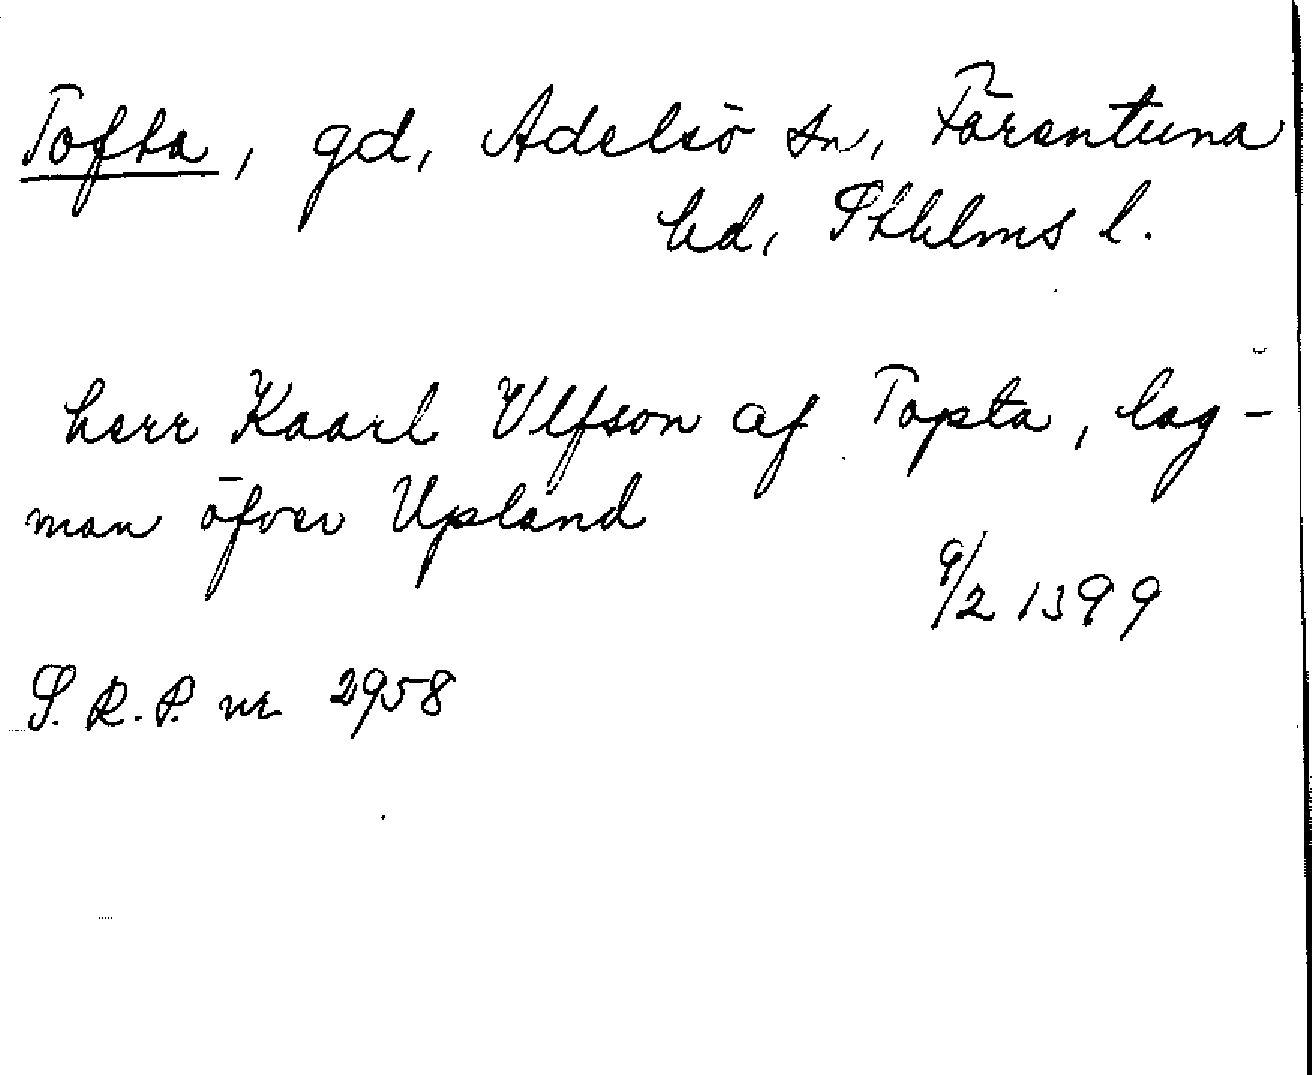 Tofta, gd, Adelsö sn, Färentuna
hd, Sthlms l.
herr Kaarl Vlfson af Topta, lag-
man öfver Upland
9/2 1399
S. R. P. nr 2958